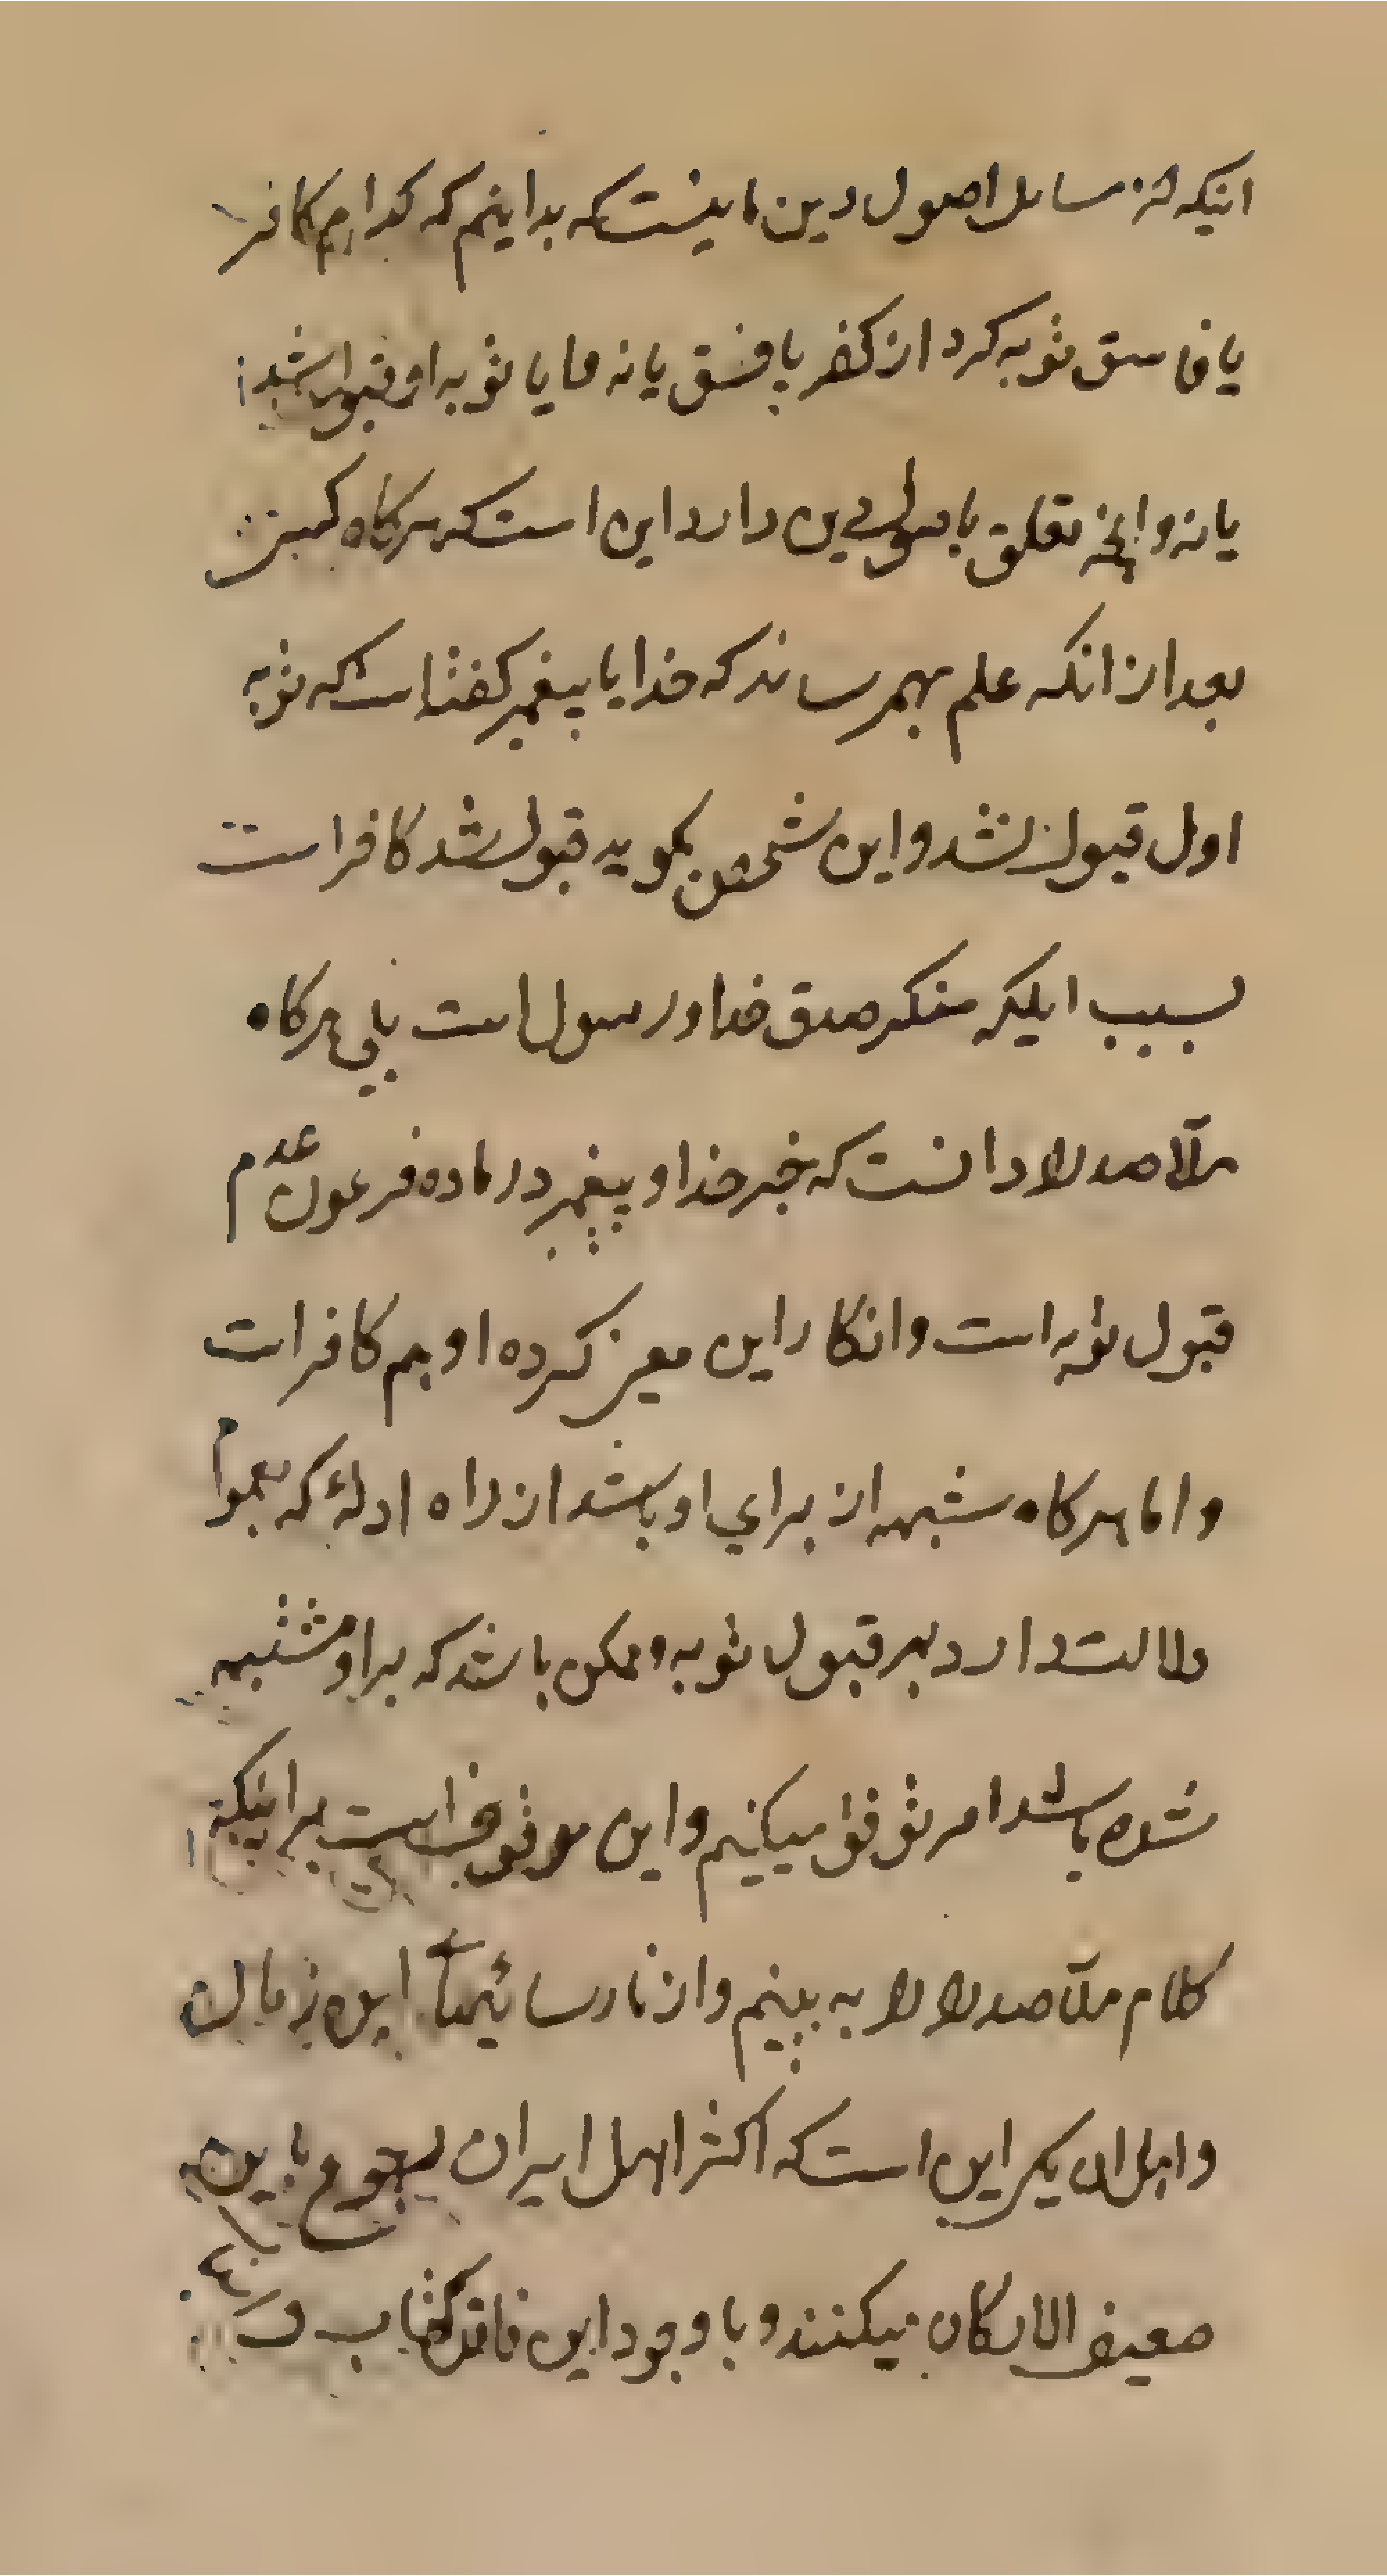 اینکه از مسایل اصول دین ما نیست که بدانیم که کدام کافر
یا فاسق توبه کرد از کفر یا فسق یا نه و ایا توبه او قبول شد
یا نه و انچه تعلق باصول دین دارد این است که هرکاه کسی
بعد از انکه علم بهم رساند که خدا یا پیغمبر کفته است که توبه
اول قبول نشد و این شخص بکوید قبول شد کافر است
بسبب اینکه منکر صدق خدا و رسول است پس هرکاه
ملا صدرا دانست که خبر خدا و پیغمبر در ماده فرعون عدم
قبول توبه است و انکار این معنی کرده او هم کافر است
و اما هرکاه شبهه از برای او باشد از راه ادلهٔ که بعموم
دلالت دارد بر قبول توبه و ممکن باشد که بر او مشتبه
شده باشد امر توقف میکنیم و این موقوف است بر اینکه
کلام ملا صدرا را به بینیم و از نارسائیهای این زمان
و اهل ان یکی این است که اکثر اهل ایران رجوع باین
ضعیف الارکان میکنند و با وجود این فاقد کتاب و